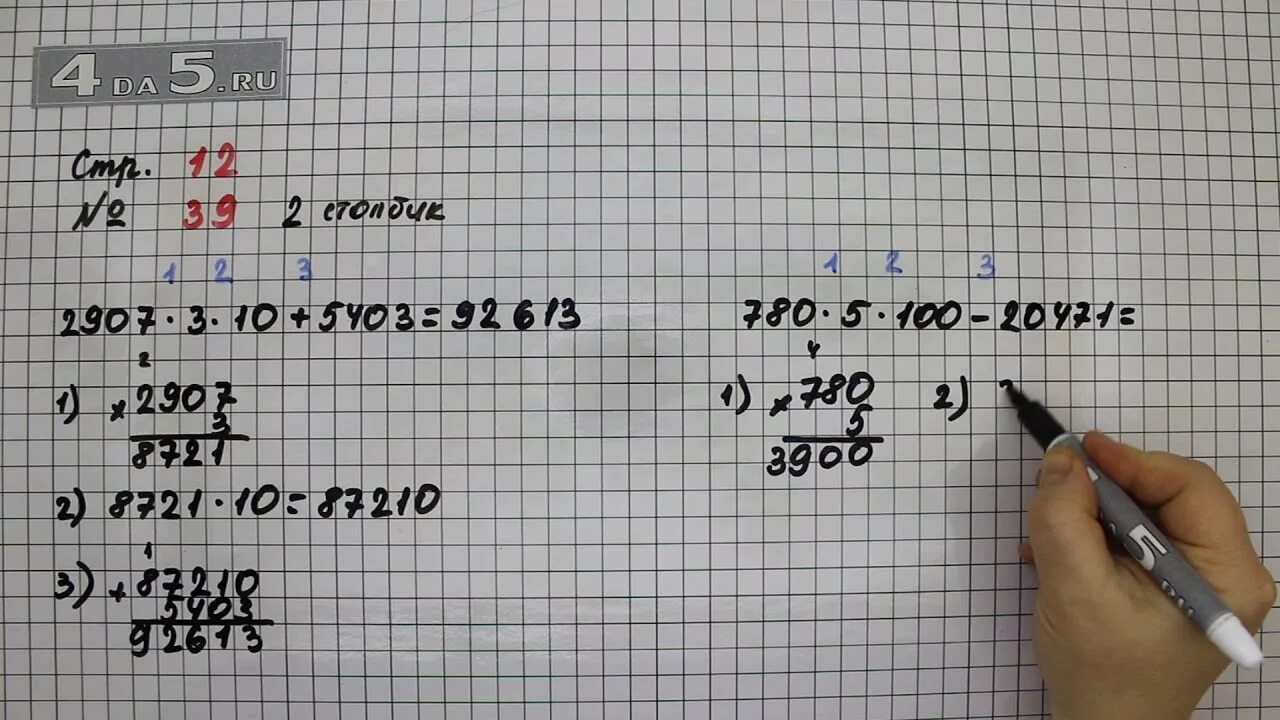 4DA5.RU
Стр. 12
№ 39 2 столбик
1 2 3
2907·3·10+5403=92613
2
1) ×2907
3
8721
2) 8721·10=87210
1
3) +87210
5403
92613
1 2 3
780·5·100-20471=
4
1) ×780
5
3900
2)
5